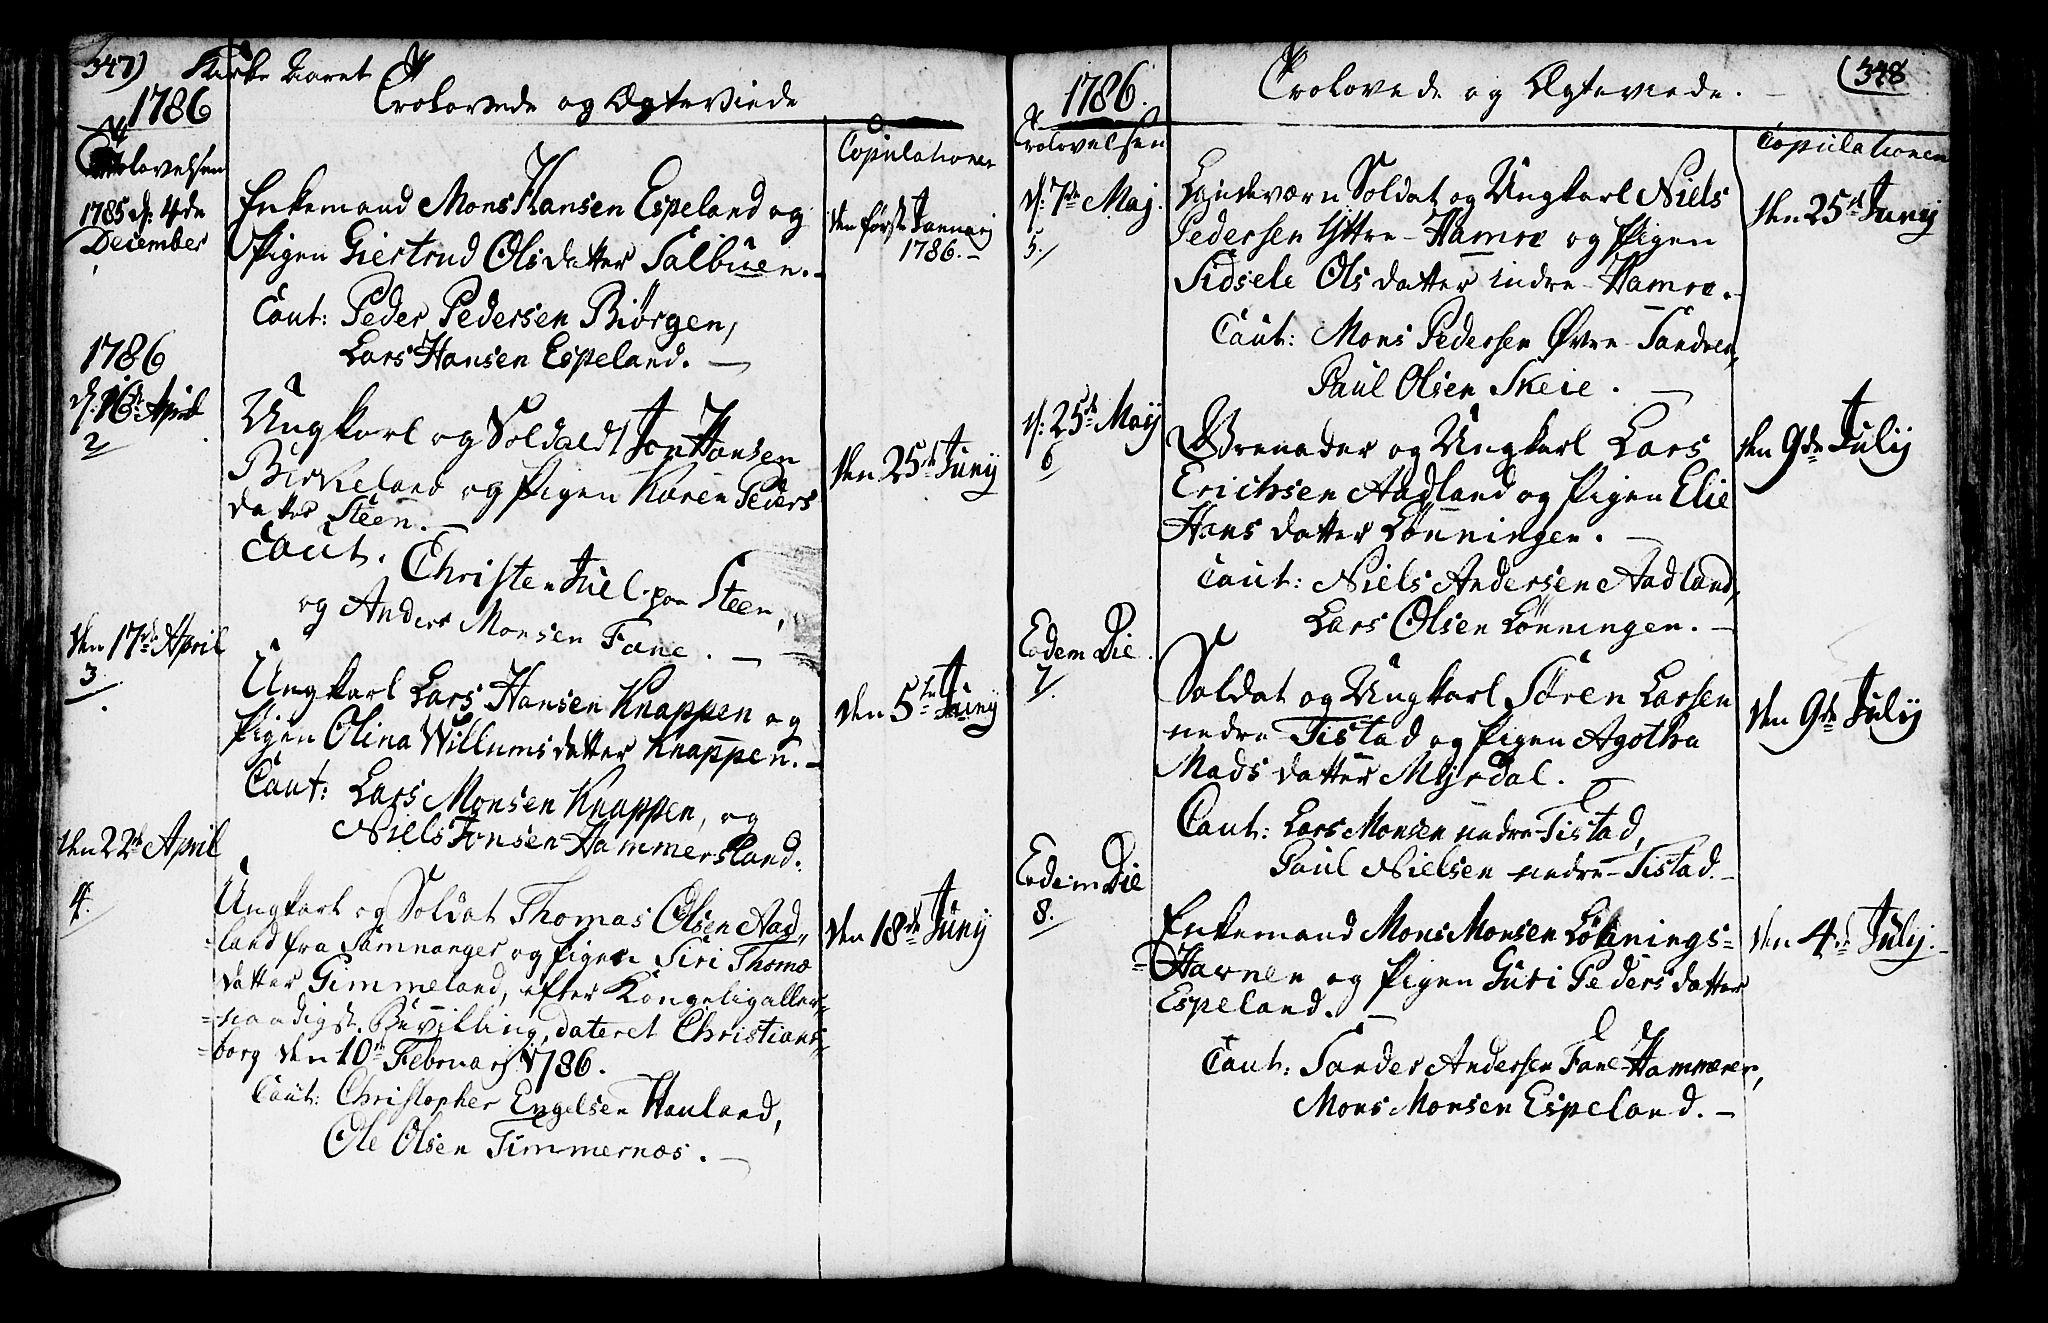 347) Kirke Aaret
1786
Trolovede og Ægteviede
Trolovelsen
Copulationen
1785 d: 4de
December
Enkemand Mons Hansen Espeland og
Pigen Giertrud Olsdatter Salbuen. -
Caut: Peder Pedersen Biørgen,
Lars Hansen Espeland. -
den første Januarij
1786. -
1786
d: 16de April
2
Ungkarl og Soldadt Jon Hansen
Birkeland og Pigen Karen Peders
datter Steen. -
Caut. Christen Juel paa Steen,
og Anders Monsen Fane. -
den 25de Junij
den 17de April
3.
Ungkarl Lars Hansen Knappen og
Pigen Olina Willumsdatter Knappen. -
Caut: Lars Monsen Knappen, og
Niels Jonsen Hammersland.
den 5te Junij
den 22de April
4.
Ungkarl og Soldat Thomas Olsen Aad-
land fra Samnanger og Pigen Siri Thomæ
datter Gimmeland, efter Kongelig aller-
naadigst Bevilling, dateret Christians-
borg den 10de Februarij 1786.
Caut: Christopher Engelsen Hauland,
Ole Olsen Timmernæs. -
den 18de Junij
1786.
Trolovede og Ægteviede. -
(348
Trolovelsen
Copulationen
d: 7de Maj.
5.
Landeværn Soldat og Ungkarl Niels
Pedersen Yttre-Hamre og Pigen
Sidsele Olsdatter indre-Hamre. -
Caut: Mons Pedersen Øvre-Sandven,
Paul Olsen Skeie. -
den 25de Junij
d: 25de Maij
6
Grenader og Ungkarl Lars
Erichsen Aadland og Pigen Elie
Hansdatter Lønningen. -
Caut: Niels Andersen Aadland,
Lars Olsen Lønningen. -
den 9de Julij
Eodem Die
7.
Soldat og Ungkarl Søren Larsen
nedre Tistad og Pigen Agotha
Madsdatter Myrdal. -
Caut: Lars Monsen nedre-Tistad,
Paul Nielsen nedre-Tistad. -
den 9de Julij
Eodem Die
8.
Enkemand Mons Monsen Lønnings-
Havnen og Pigen Guri Pedersdatter
Espeland. -
Caut: Sander Andersen Fane-Hammeren,
Mons Monsen Espeland. -
den 4de Julij. -